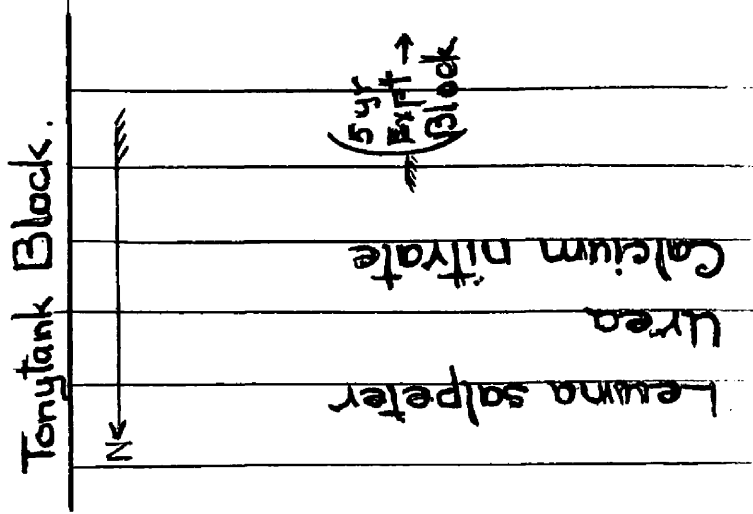 Tonytank Block.
N
5 yr
Expt →
Block
Calcium nitrate
Urea
Leuna salpeter